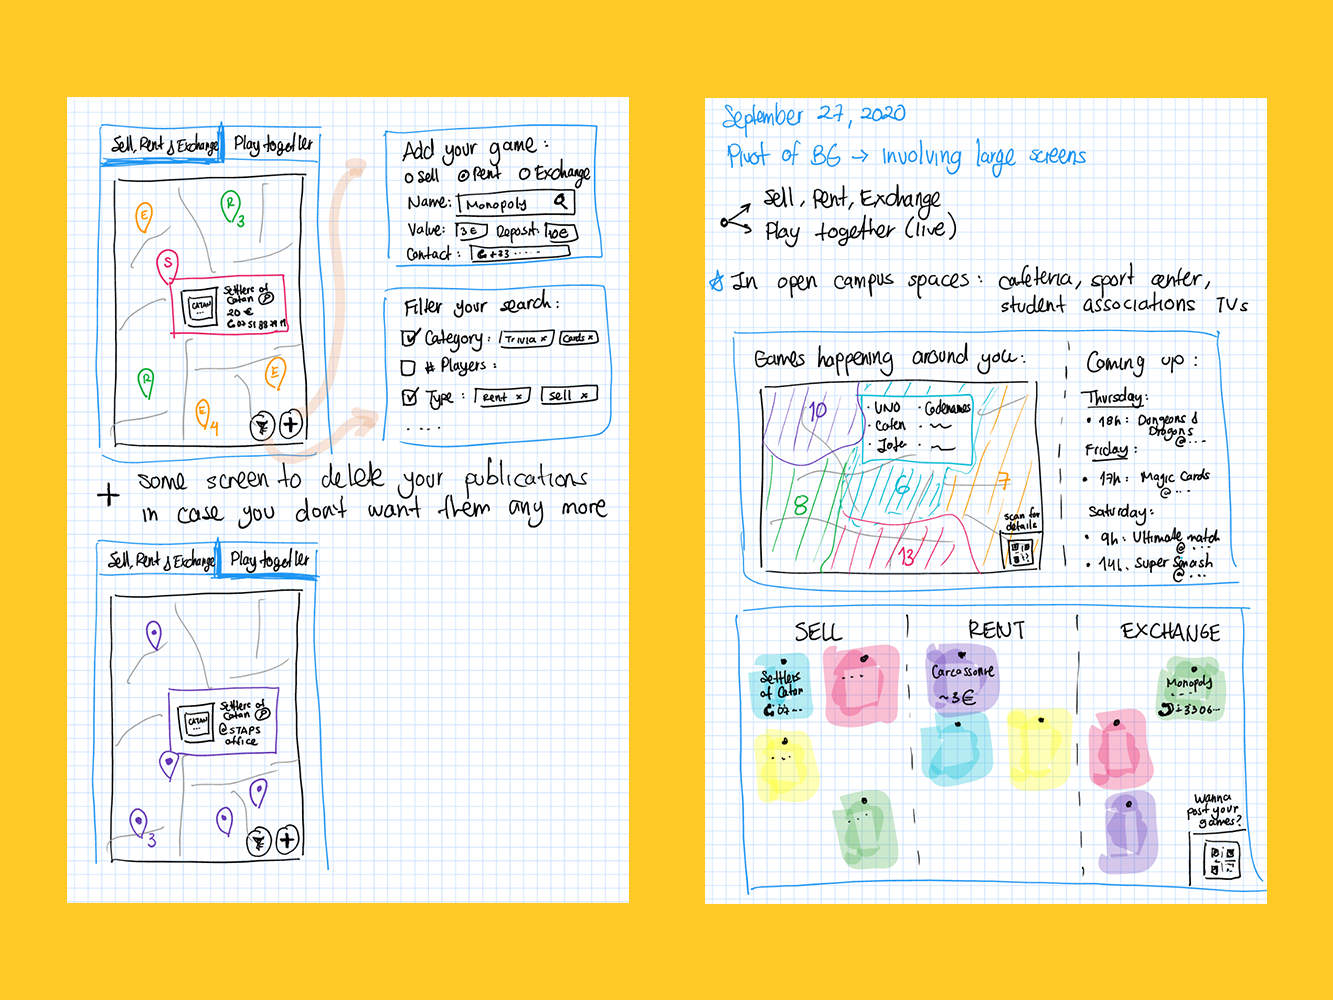 Sell, Rent & Exchange
Play together
E
R
3
S
CATAN
...
Settlers of
Catan P
20 €
R
E
E
4
+
Add your game:
Sell Rent Exchange
Name: Monopoly
Value: 3€ Deposit: 10€
Contact: +33 ....
Filter your search:
Category: Trivia x Cards x
# Players:
Type: Rent x Sell x
. . . .
+ some screen to delete your publications
in case you don't want them any more
Sell, Rent & Exchange
Play together
CATAN
...
Settlers of
Catan P
@STAPS
office
3
+
September 27, 2020
Pivot of BG → involving large screens
Sell, Rent, Exchange
Play together (live)
In open campus spaces: cafeteria, sport center,
student associations TVs
Games happening around you:
10
· UNO · Codenames
· Catan ·
·
6
7
8
13
scan for
details
Coming up:
Thursday:
• 18h: Dongeons &
Dragons
@....
Friday:
• 17h: Magic Cards
@...
Saturday:
• 9h: Ultimate match
@ ...
• 14h. Super Smash
@...
SELL
RENT
EXCHANGE
Settlers
of Catan
07...
...
Carcassonne
~3€
Monopoly
....
...
...
Wanna
post your
games?